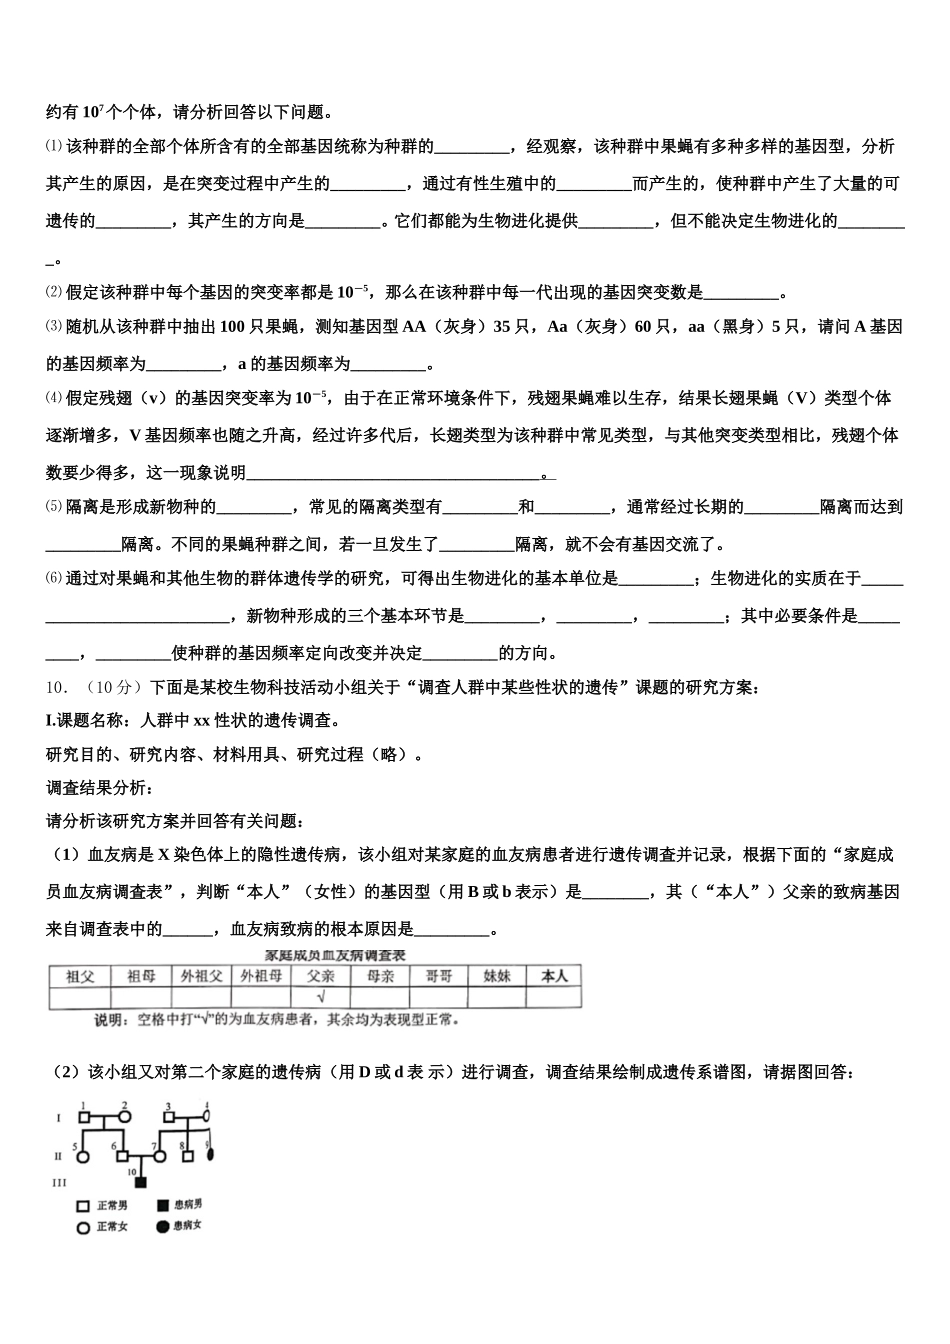 约有 10⁷个个体，请分析回答以下问题。
⑴ 该种群的全部个体所含有的全部基因统称为种群的_________，经观察，该种群中果蝇有多种多样的基因型，分析
其产生的原因，是在突变过程中产生的_________，通过有性生殖中的_________而产生的，使种群中产生了大量的可
遗传的_________，其产生的方向是_________。它们都能为生物进化提供_________，但不能决定生物进化的________
_。
⑵ 假定该种群中每个基因的突变率都是 10⁻⁵，那么在该种群中每一代出现的基因突变数是_________。
⑶ 随机从该种群中抽出 100 只果蝇，测知基因型 AA（灰身）35 只，Aa（灰身）60 只，aa（黑身）5 只，请问 A 基因
的基因频率为_________，a 的基因频率为_________。
⑷ 假定残翅（v）的基因突变率为 10⁻⁵，由于在正常环境条件下，残翅果蝇难以生存，结果长翅果蝇（V）类型个体
逐渐增多，V 基因频率也随之升高，经过许多代后，长翅类型为该种群中常见类型，与其他突变类型相比，残翅个体
数要少得多，这一现象说明___________________________________。
⑸ 隔离是形成新物种的_________，常见的隔离类型有_________和_________，通常经过长期的_________隔离而达到
_________隔离。不同的果蝇种群之间，若一旦发生了_________隔离，就不会有基因交流了。
⑹ 通过对果蝇和其他生物的群体遗传学的研究，可得出生物进化的基本单位是_________；生物进化的实质在于_____
______________________，新物种形成的三个基本环节是_________，_________，_________；其中必要条件是_____
____，_________使种群的基因频率定向改变并决定_________的方向。
10．（10 分）下面是某校生物科技活动小组关于“调查人群中某些性状的遗传”课题的研究方案：
I.课题名称：人群中 xx 性状的遗传调查。
研究目的、研究内容、材料用具、研究过程（略）。
调查结果分析：
请分析该研究方案并回答有关问题：
（1）血友病是 X 染色体上的隐性遗传病，该小组对某家庭的血友病患者进行遗传调查并记录，根据下面的“家庭成
员血友病调查表”，判断“本人”（女性）的基因型（用 B 或 b 表示）是________，其（“本人”）父亲的致病基因
来自调查表中的______，血友病致病的根本原因是_________。
家庭成员血友病调查表
祖父 祖母 外祖父 外祖母 父亲 母亲 哥哥 妹妹 本人
√
说明：空格中打“√”的为血友病患者，其余均为表现型正常。
（2）该小组又对第二个家庭的遗传病（用 D 或 d 表 示）进行调查，调查结果绘制成遗传系谱图，请据图回答：
1 2 3 4
I
5 6 7 8 9
II
10
III
正常男 患病男
正常女 患病女